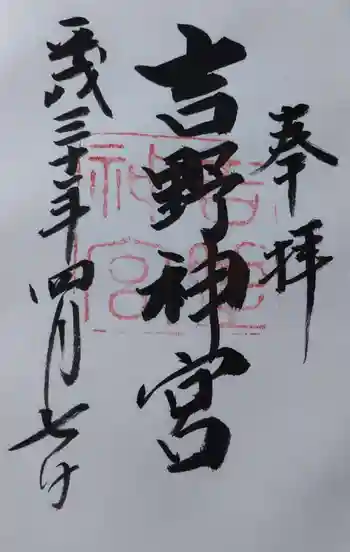 奉拝
吉野神宮
平成三十年四月七日
吉野
神宮